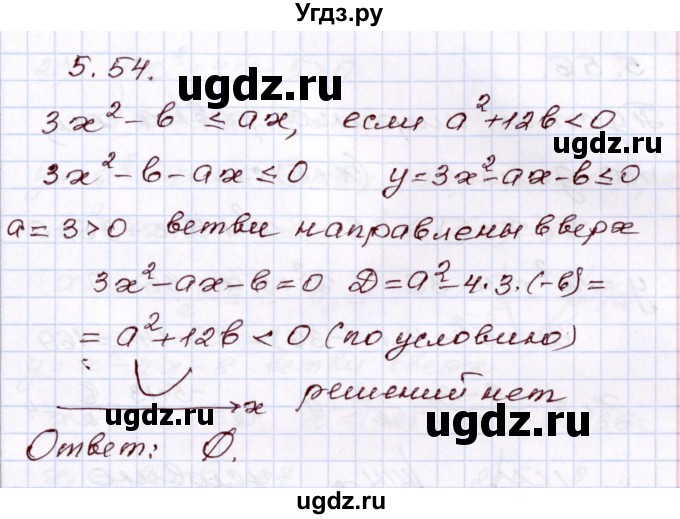 Угдз.ру
5.54.
ugdz.ru ugdz.ru
3x² - в ≤ ax, если a² + 12в < 0
3x² - в - ax ≤ 0 y = 3x² - ax - в ≤ 0
a = 3 > 0 ветви направлены вверх
ugdz.ru
3x² - ax - в = 0 D = a² - 4·3·(-в) =
= a² + 12в < 0 (по условию)
x решений нет
ugdz.ru ugdz.ru
Ответ: Ø.
ugdz.ru